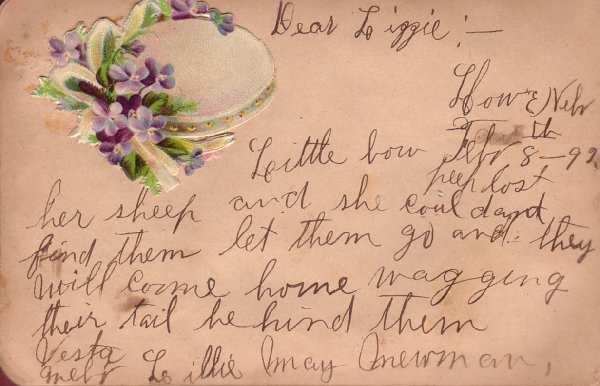 Dear Lizzie :—
Howe, Nebr
Febr 8th – 92
Little bow peep lost
her sheep and she could dant
find them let them go and they
will come home wagging
their tail behind them
Vesta Lillie May Newman,
Nebr